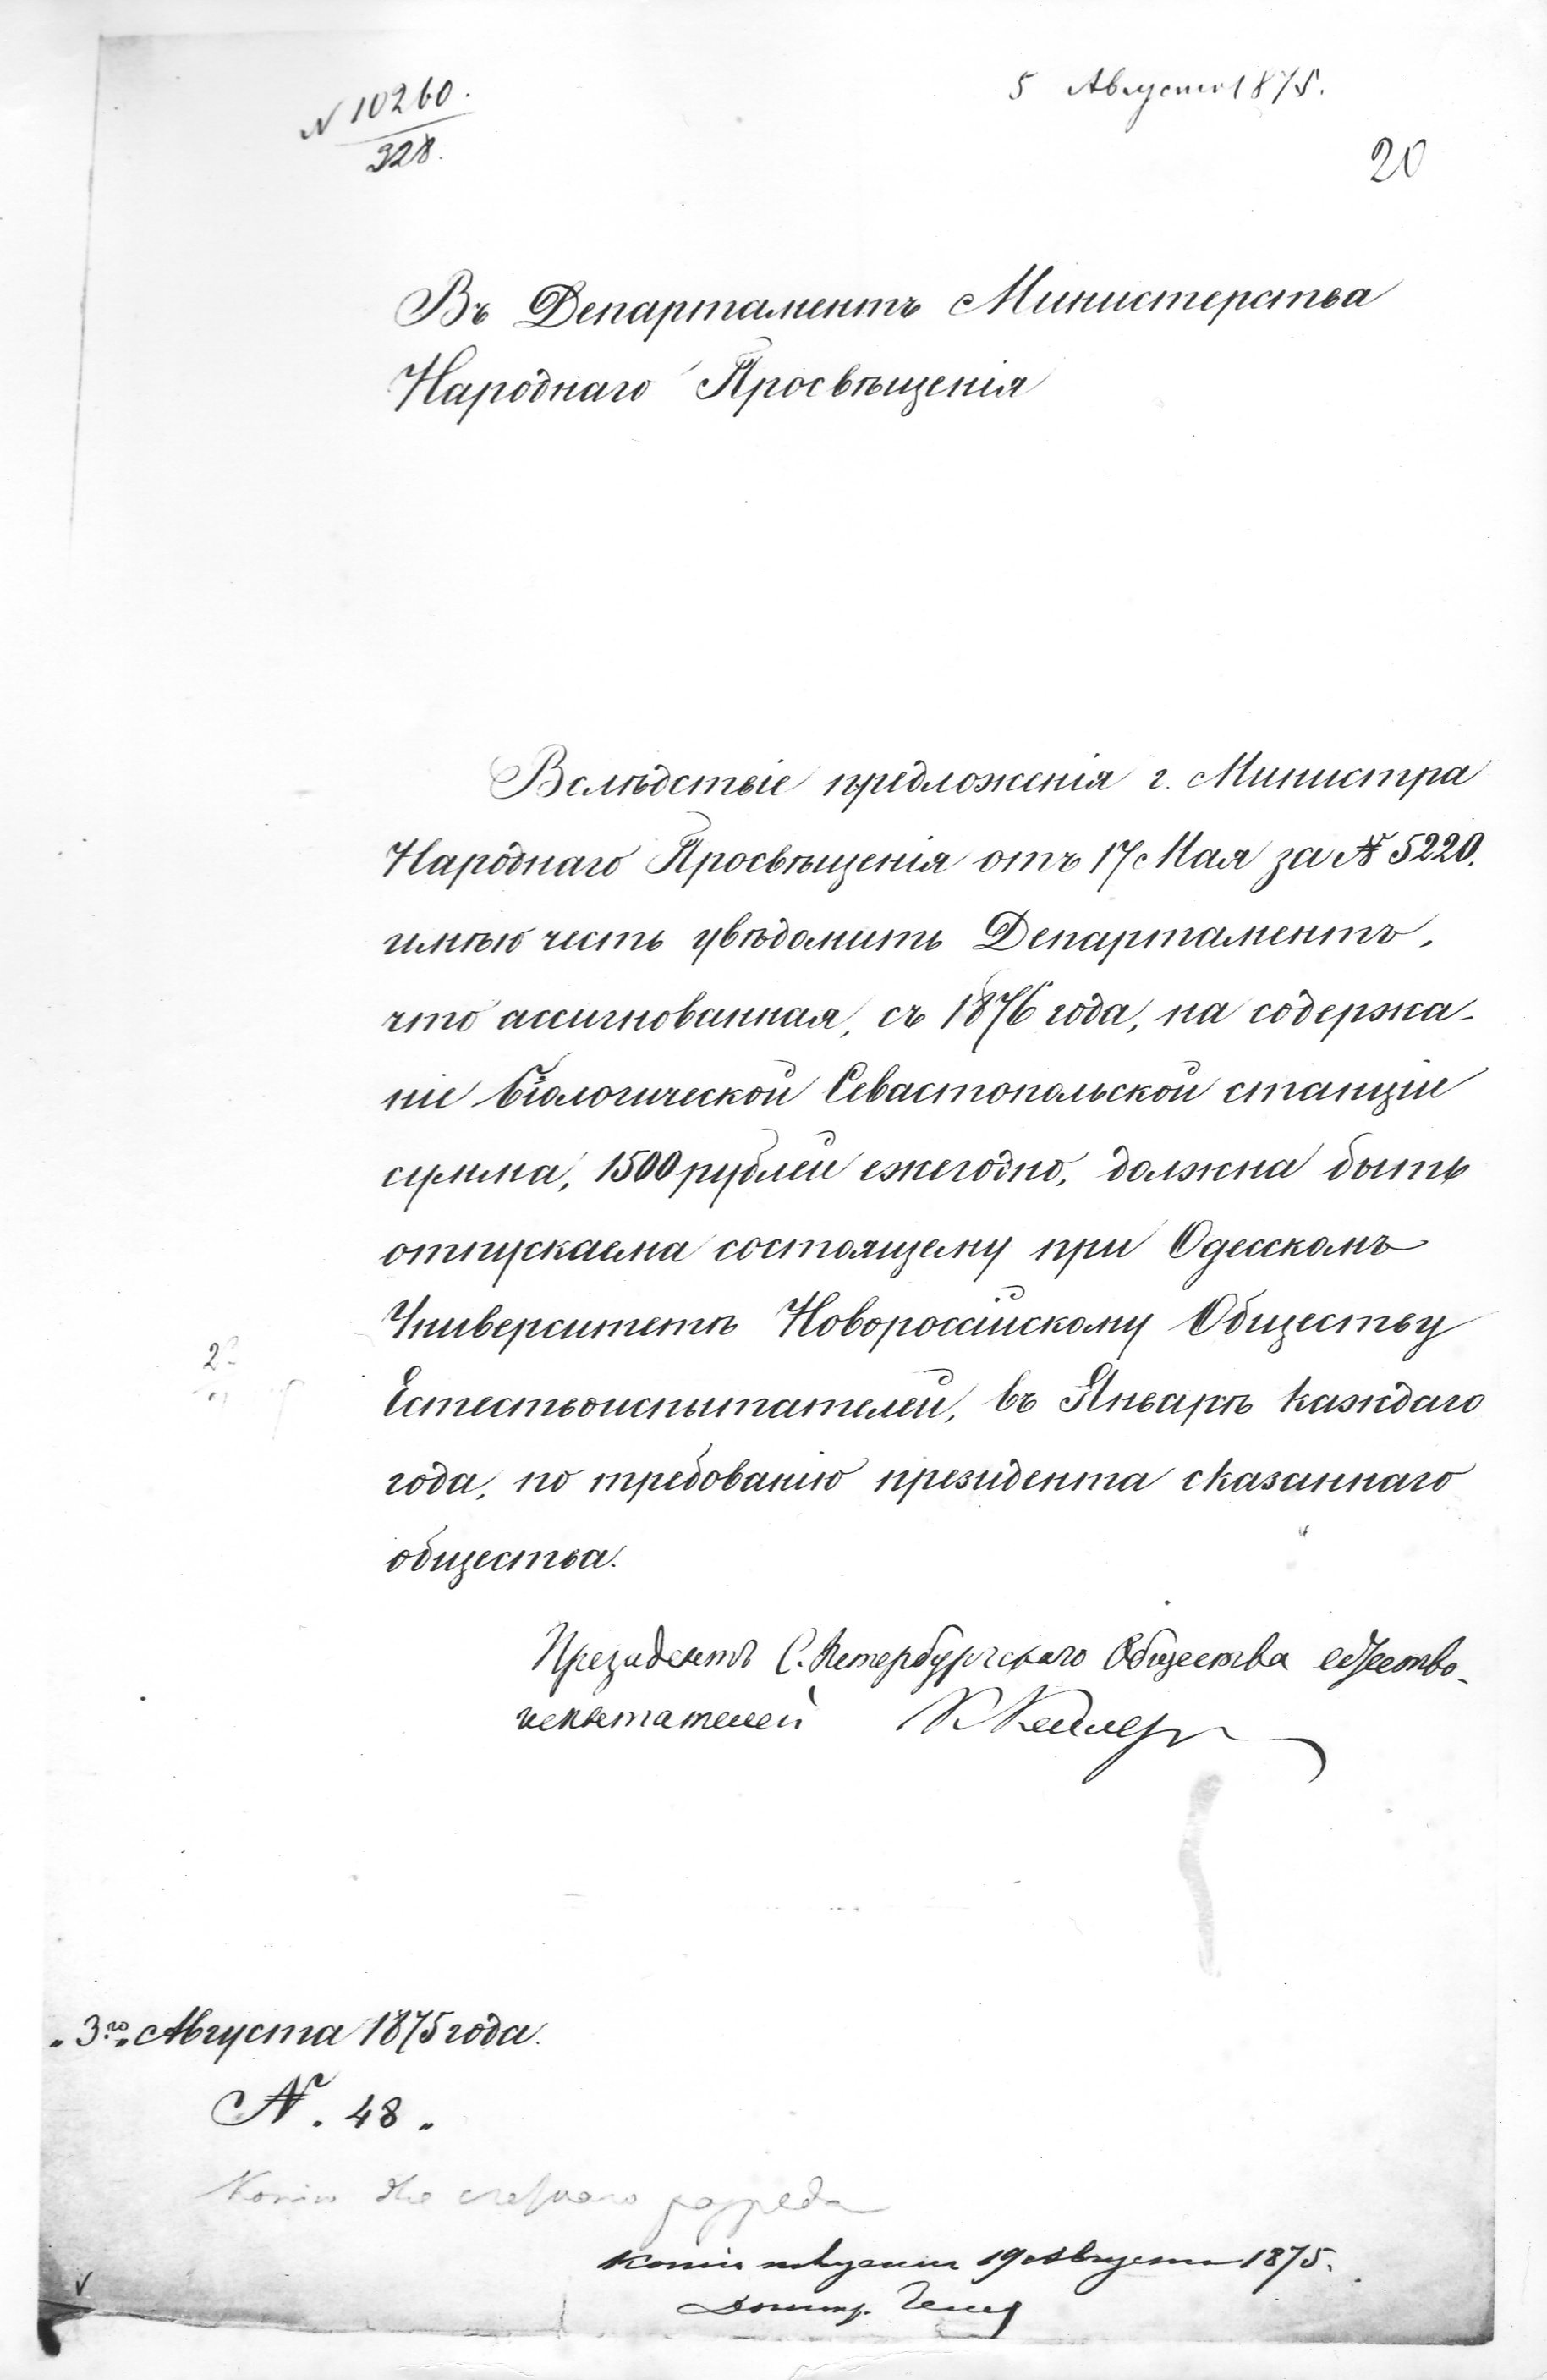 N 10260.
328.
5 Августа 1875.
20
Въ Департаментъ Министерства
Народнаго Просвѣщенія
Вслѣдствіе предложенія г. Министра
Народнаго Просвѣщенія отъ 17 Мая за № 5220.
имѣю честь увѣдомить Департаментъ,
что ассигнованная, съ 1876 года, на содержа-
ніе біологической Севастопольской станціи
сумма, 1500 рублей ежегодно, должна быть
отпускаема состоящему при Одесскомъ
Университетѣ Новороссійскому Обществу
Естествоиспытателей, въ Январѣ каждаго
года, по требованію президента сказаннаго
общества.
Президентъ С. Петербургскаго Общества естество-
испытателей К Кесслеръ
„3го„ Августа 1875 года.
№. 48.
Копію для счетнаго разряда
Копію получилъ 19 Августа 1875.